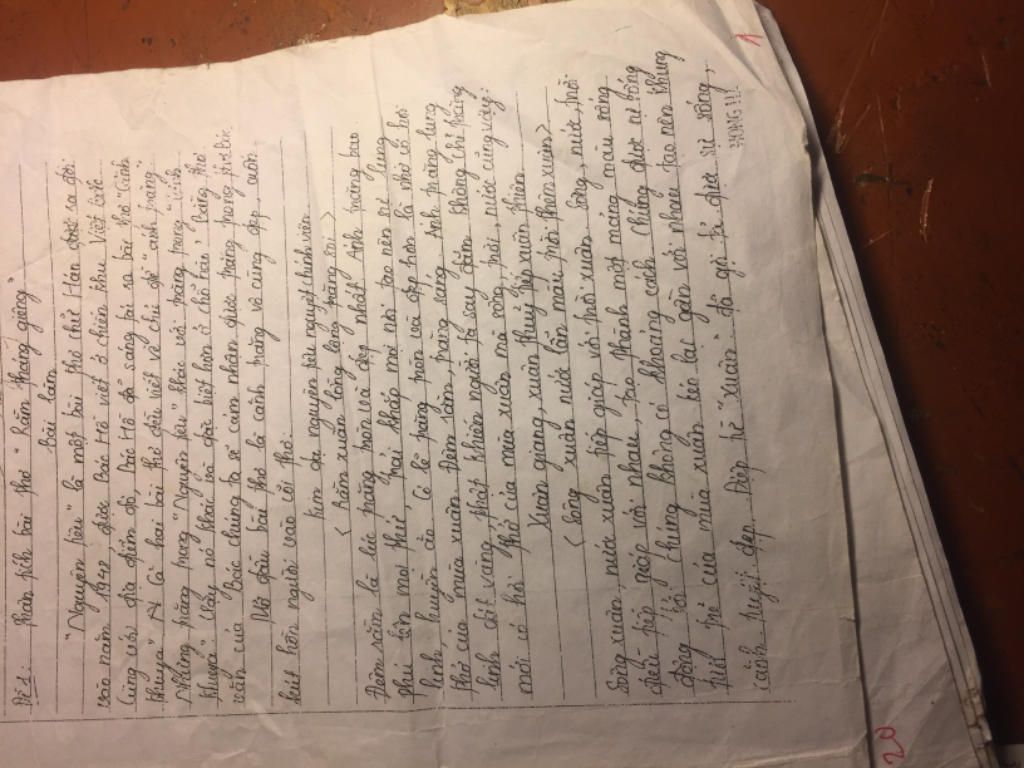 Đề 1: Phân tích bài thơ "Rằm tháng giêng"
Bài làm
"Nguyên tiêu" là một bài thơ chữ Hán được ra đời
vào năm 1948, được Bác Hồ viết ở chiến khu Việt Bắc
Cùng với địa điểm đó, Bác Hồ đã sáng tác ra bài thơ "Cảnh
khuya" là hai bài thơ đều viết về chủ đề "ánh trăng
Nhưng trăng trong "Nguyên tiêu" khác với trăng trong "Cảnh
khuya" Vậy nó khác và đặc biệt hơn ở chỗ nào, bằng thơ
văn của Bác chúng ta sẽ cảm nhận được trăng trong
Mở đầu bài thơ là cảnh trăng vô cùng đẹp, quấn
hút hồn người vào cõi thơ:
Kim dạ nguyên tiêu nguyệt chính viên
( Rằm xuân lồng lộng trăng soi )
Đêm rằm là lúc trăng tròn và đẹp nhất Ánh trăng bao
phủ lên mọi thứ, trải khắp mọi nơi tạo nên sự lung
linh, huyền ảo. Có lẽ trăng trên và đẹp hơn là nhờ có hơi
thở của mùa xuân. Đêm rằm, trăng sáng, ánh trăng lung
linh dát vàng thật khiến người ta say đắm. Không chỉ trăng
mới có hơi thở của mùa xuân mà sông, trời, nước cũng vậy:
Xuân giang, xuân thuỷ tiếp xuân thiên
( Sông xuân nước lẫn màu trời thêm xuân )
Sông xuân, nước xuân tiếp giáp với trời xuân. Sông, nước, trời
đều tiếp giáp với nhau, tạo thành một mảng màu nông
động, trời chúng không có khoảng cách. Chúng được sự sống
tiết trẻ của mùa xuân kéo lại gần với nhau tạo nên khung
cảnh tuyệt đẹp. Điệp từ "xuân" đã gợi tả được sự sống,
HÙNG !!!
1
20